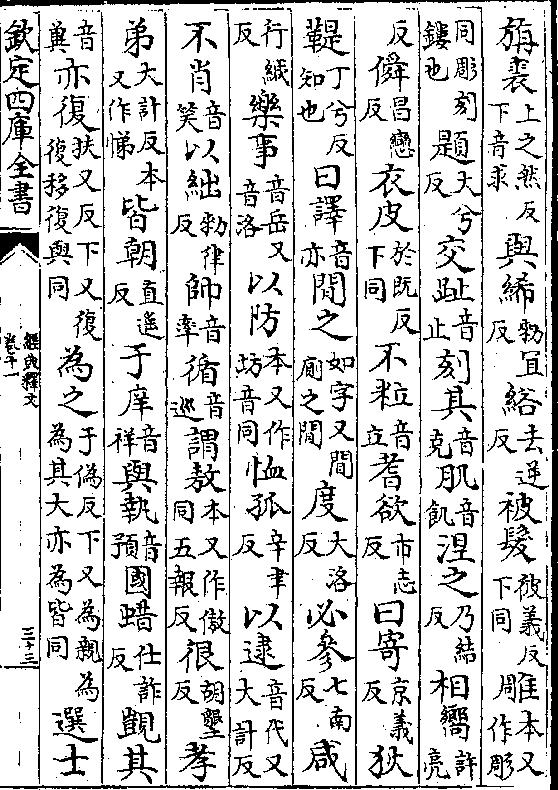 旃裘上之然反下音求與絺勅宜反綌去逆反被髮彼義反下同雕本又作彫
同彫刻鏤也題大兮反交趾音止刻其音克肌音飢涅之乃結反相嚮許亮
反僢昌戀反衣皮於既反下同不粒音立耆欲市志反曰寄京義反狄
鞮丁兮反知也曰譯音亦間之如字又間廁之間度大洛反必參七南反咸
行緘反樂事音岳又音洛以防本又作坊音同恤孤辛聿反以逮音代又大計反
不肖音笑以絀勑律反帥音率循音巡謂敖本又作傲同五報反很胡墾反孝
弟大計反本又作悌皆朝直遥反于庠音祥與執音預國蜡仕詐反覬其
音兾亦復扶又反下又復復移復與同為之于偽反下又為親為為其大亦為皆同選士
欽定四庫全書
經典釋文
卷十一
三十三